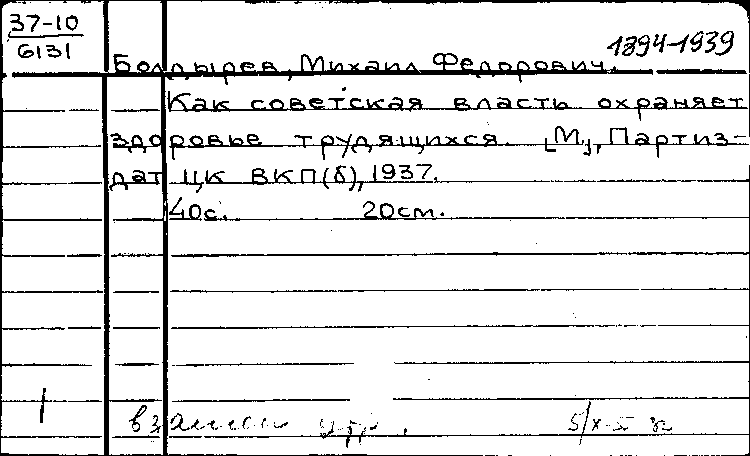 37-10
6131
1894-1939
Болдырев, Михаил Федорович.
Как советская власть охраняет
здоровье трудящихся. [М.], Партиз-
дат ЦК ВКП(б), 1937.
40с. 20см.
1
взамен утр.